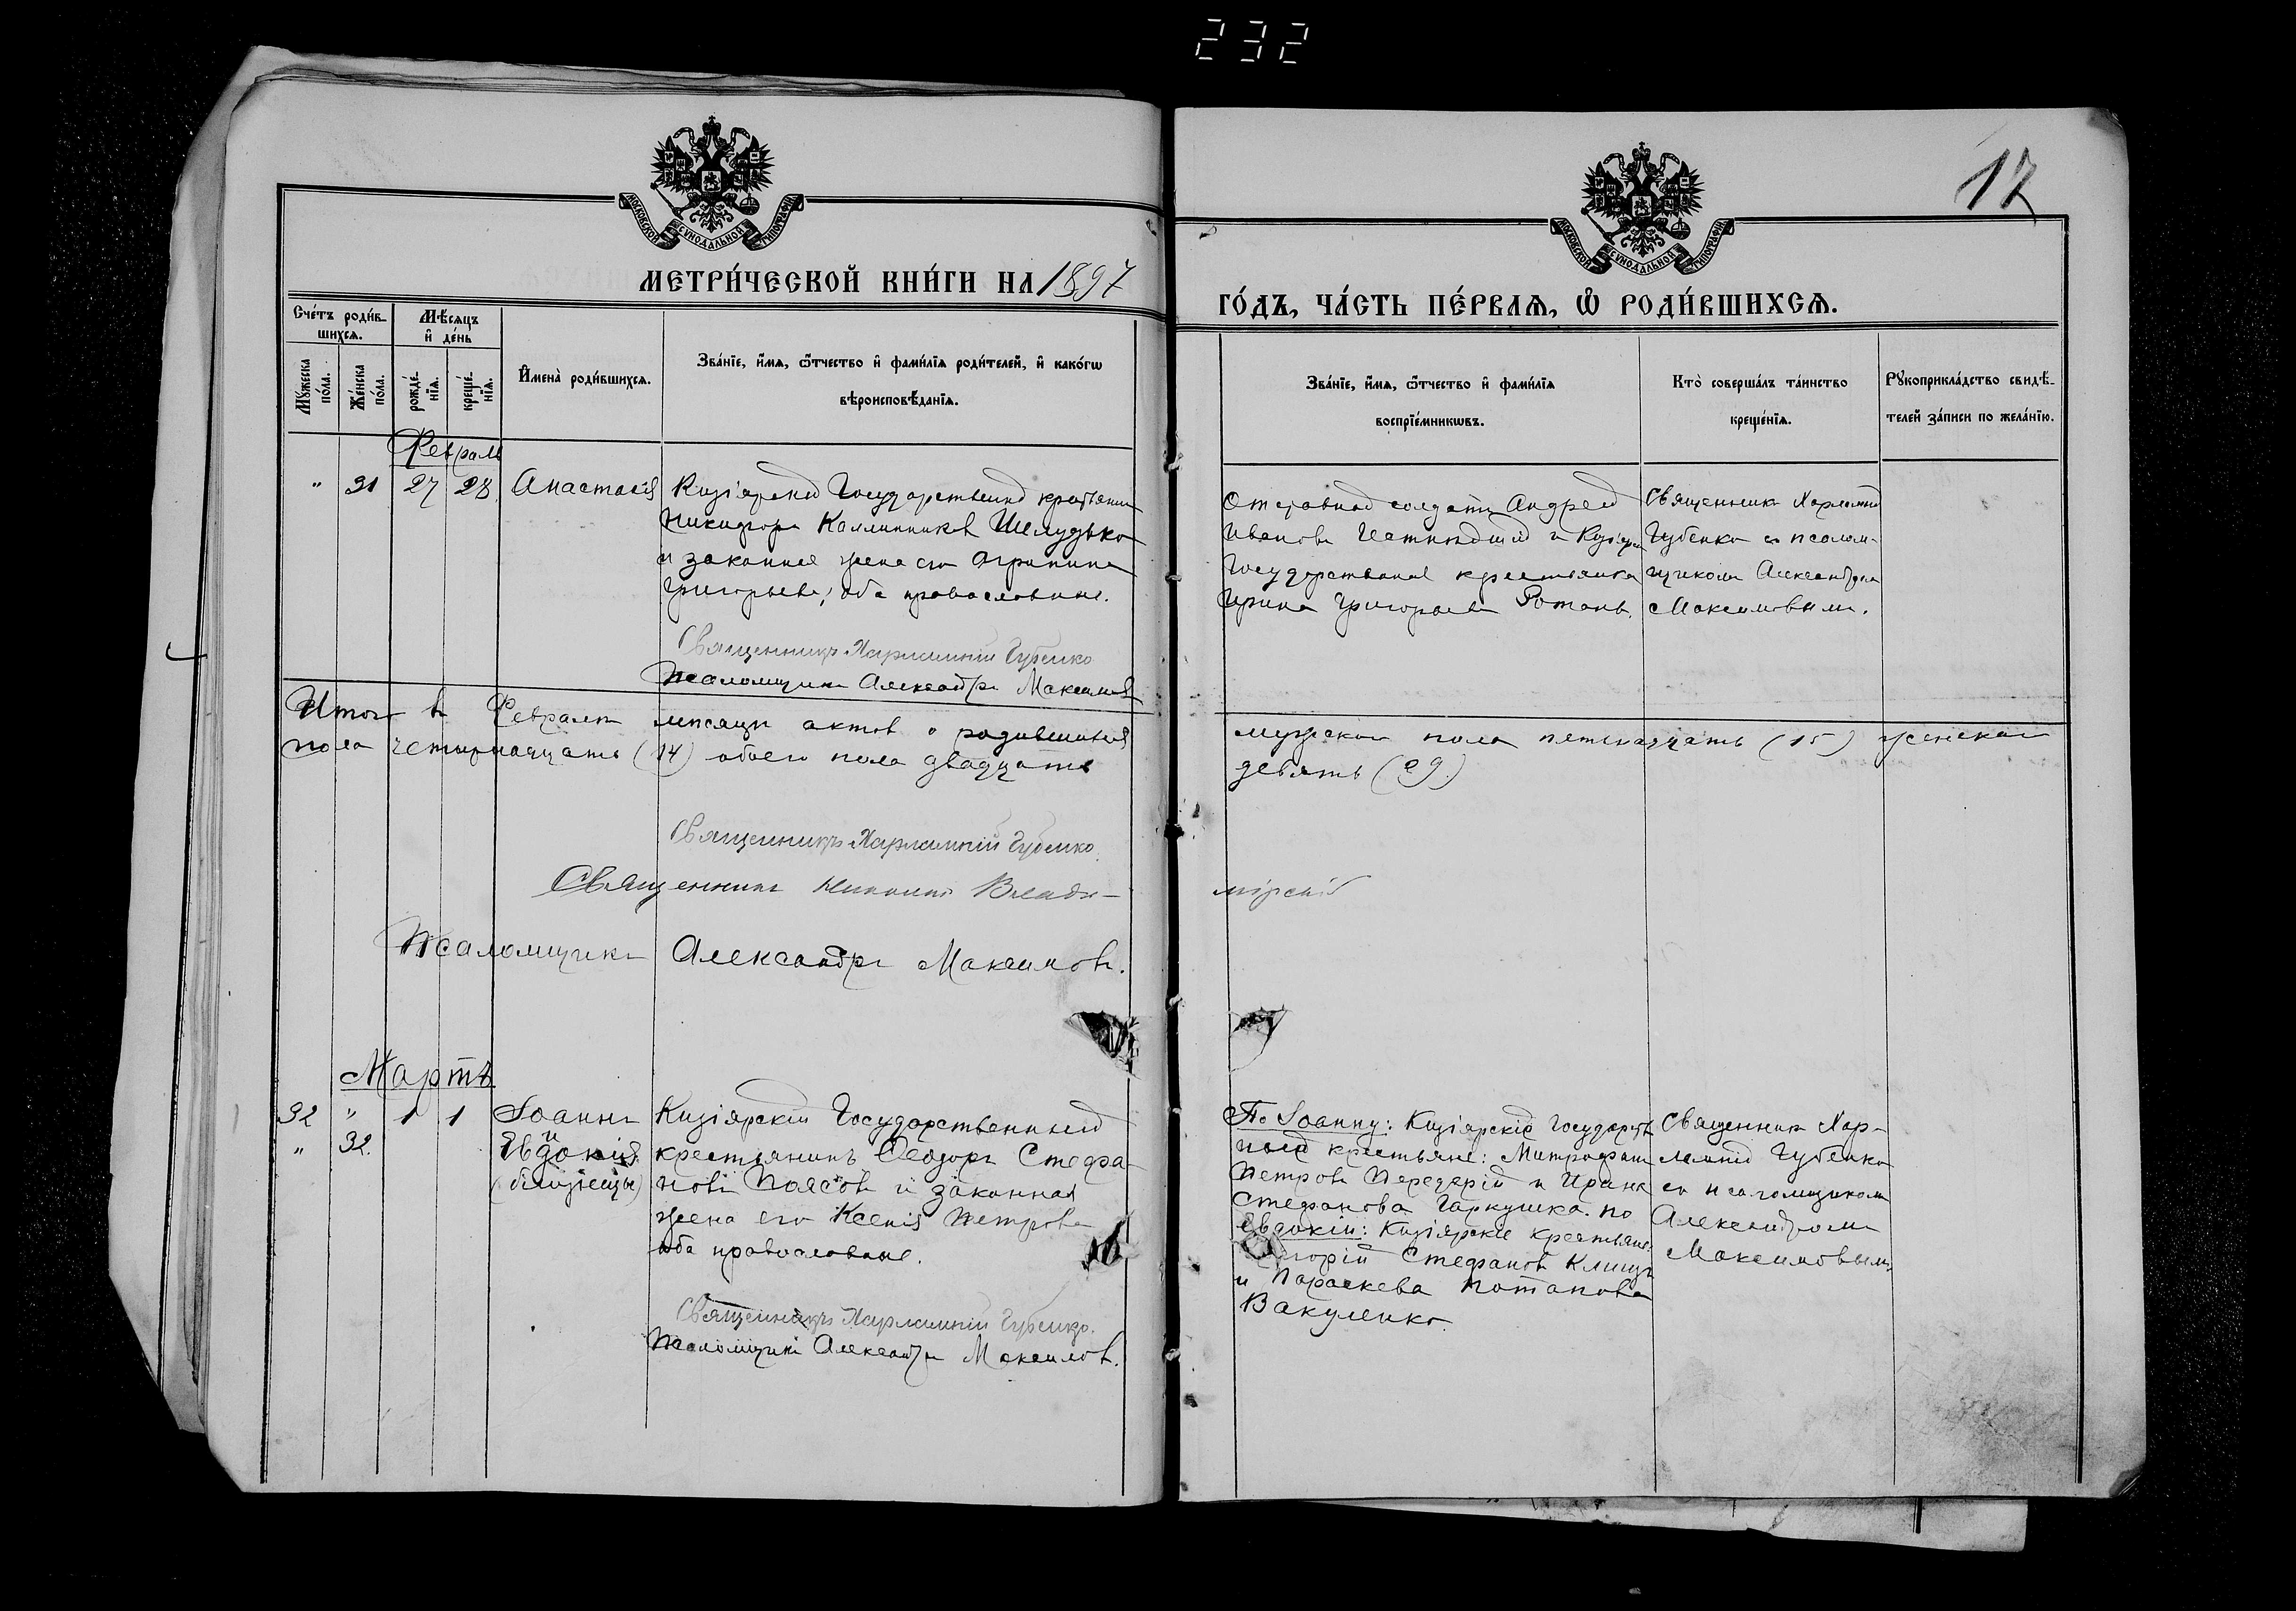 232
17
МОСКОВСКОЙ СѴНОДАЛЬНОЙ ТИПОГРАФІИ
МОСКОВСКОЙ СѴНОДАЛЬНОЙ ТИПОГРАФІИ
МЕТРИ́ЧЕСКОЙ КНИ́ГИ НА 1897
ГО́ДЪ, ЧА́СТЬ ПЕ́РВАѦ, Ѽ РОДИ́ВШИХСѦ.
Сче́тъ роди́в-
шихсѧ.
Мꙋ́жеска по́ла.
Же́нска по́ла.
Мѣ́сѧцъ
и҆ де́нь
рожде́-
нїѧ.
креще́-
нїѧ.
И҆мена̀ роди́вшихсѧ.
Зва́нїе, и҆́мѧ, ѻ҆́тчество и҆ фами́лїѧ роди́телей, и҆ како́гѡ
вѣроисповѣ́данїѧ.
Зва́нїе, и҆́мѧ, ѻ҆́тчество и҆ фами́лїѧ
воспрїе́мникѡвъ.
Кто̀ соверша́лъ та́инство
креще́нїѧ.
Рꙋкоприкла́дство свидѣ́-
телей за́писи по жела́нїю.
Февраль
" 31 27 28 Анастасія
Кизіярскій Государственный крестьянин
Никифоръ Каллиниковъ Шелудько
и законная жена его Агрипина
Григорьева, оба православные.
Священникъ Харлампій Губенко
Псаломщикъ Александръ Максимовъ
Отставной солдатъ Андрей
Ивановъ и
Государственная крестьянка
Ирина Григорьева Ротань.
Священникъ Харлампій
Губенко съ псалом-
щикомъ Александромъ
Максимовымъ.
Итого въ Февралѣ мѣсяцѣ актовъ о родившихся
мужскаго пола пятнадцать (15) женскаго
пола четырнадцать (14) обоего пола двадцать
девять (29.)
Священникъ Харлампій Губенко
Священникъ Влади-
мірскій
Псаломщикъ Александръ Максимовъ.
Мартъ
32 " 1 1 Іоаннъ
и
" 32. Евдокія
(близнецы)
Кизіярскій Государственный
крестьянинъ Ѳеодоръ Стефа-
новъ Поясовъ и законная
жена его Ксенія Петрова
оба православные.
Священникъ Харлампій Губенко.
Псаломщикъ Александръ Максимовъ.
По Іоанну: Кизіярскіе Государств
ные крестьяне: Митрофанъ
Петровъ Передерій и Ирина
Стефанова Гаркушка. по
Евдокіи: Кизіярскіе крестьяне:
Григорій Стефановъ Клищъ
и Параскева Потапова
Вакуленко.
Священникъ Хар-
лампій Губенко
съ псаломщикомъ
Александромъ
Максимовымъ.